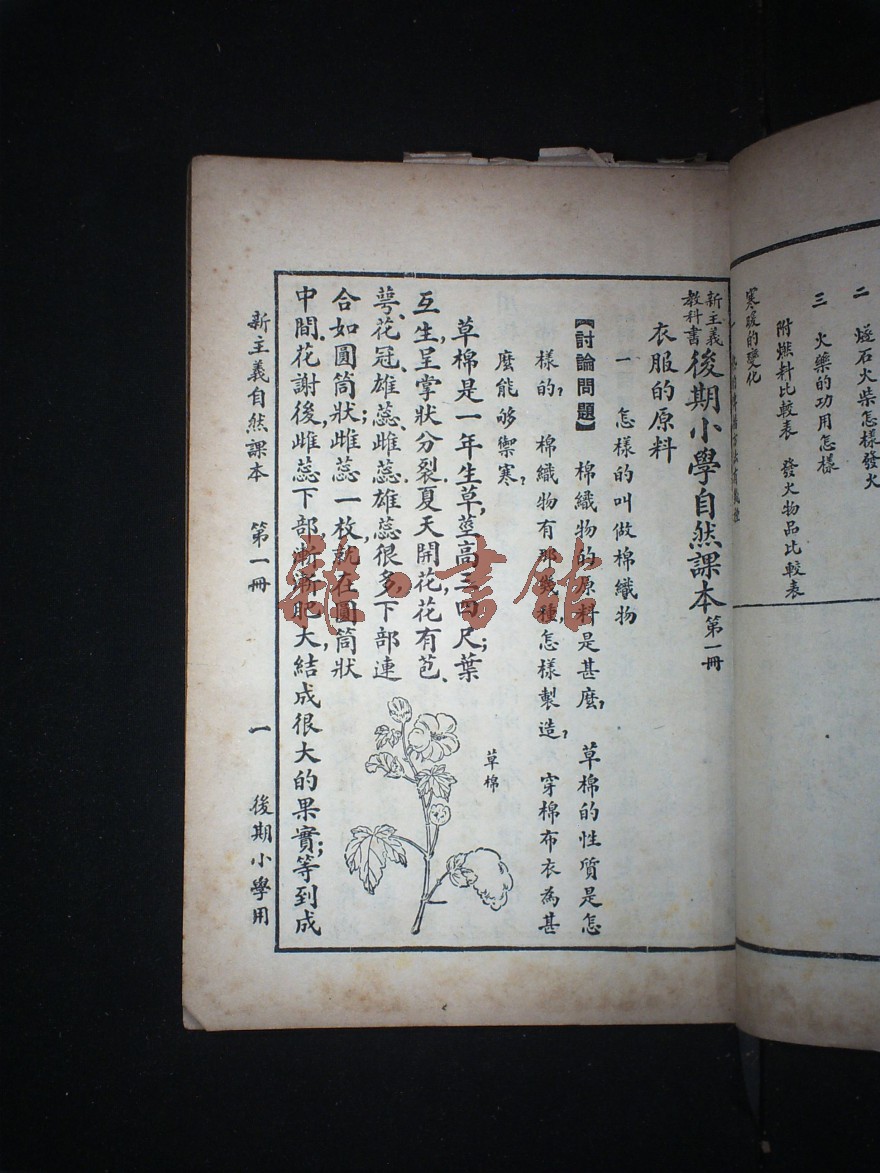 二　燧石火柴怎樣發火
三　火藥的功用怎樣
附燃料比較表　發火物品比較表
寒暖的變化
新主義教科書 後期小學自然課本 第一冊
衣服的原料
一　怎樣的叫做棉織物
【討論問題】　棉織物的原料是甚麼？　草棉的性質是怎
樣的？　棉織物有那幾種，怎樣製造？　穿棉布衣為甚
麼能够禦寒？
草棉是一年生草，莖高三四尺；葉
互生，呈掌狀分裂。夏天開花，花有苞、
萼、花冠、雄蕊、雌蕊。雄蕊很多，下部連
合如圓筒狀；雌蕊一枚，就在圓筒狀
中間。花謝後，雌蕊下部，漸漸肥大，結成很大的果實；等到成
草棉
新主義自然課本　第一冊　一　後期小學用
雜·書館